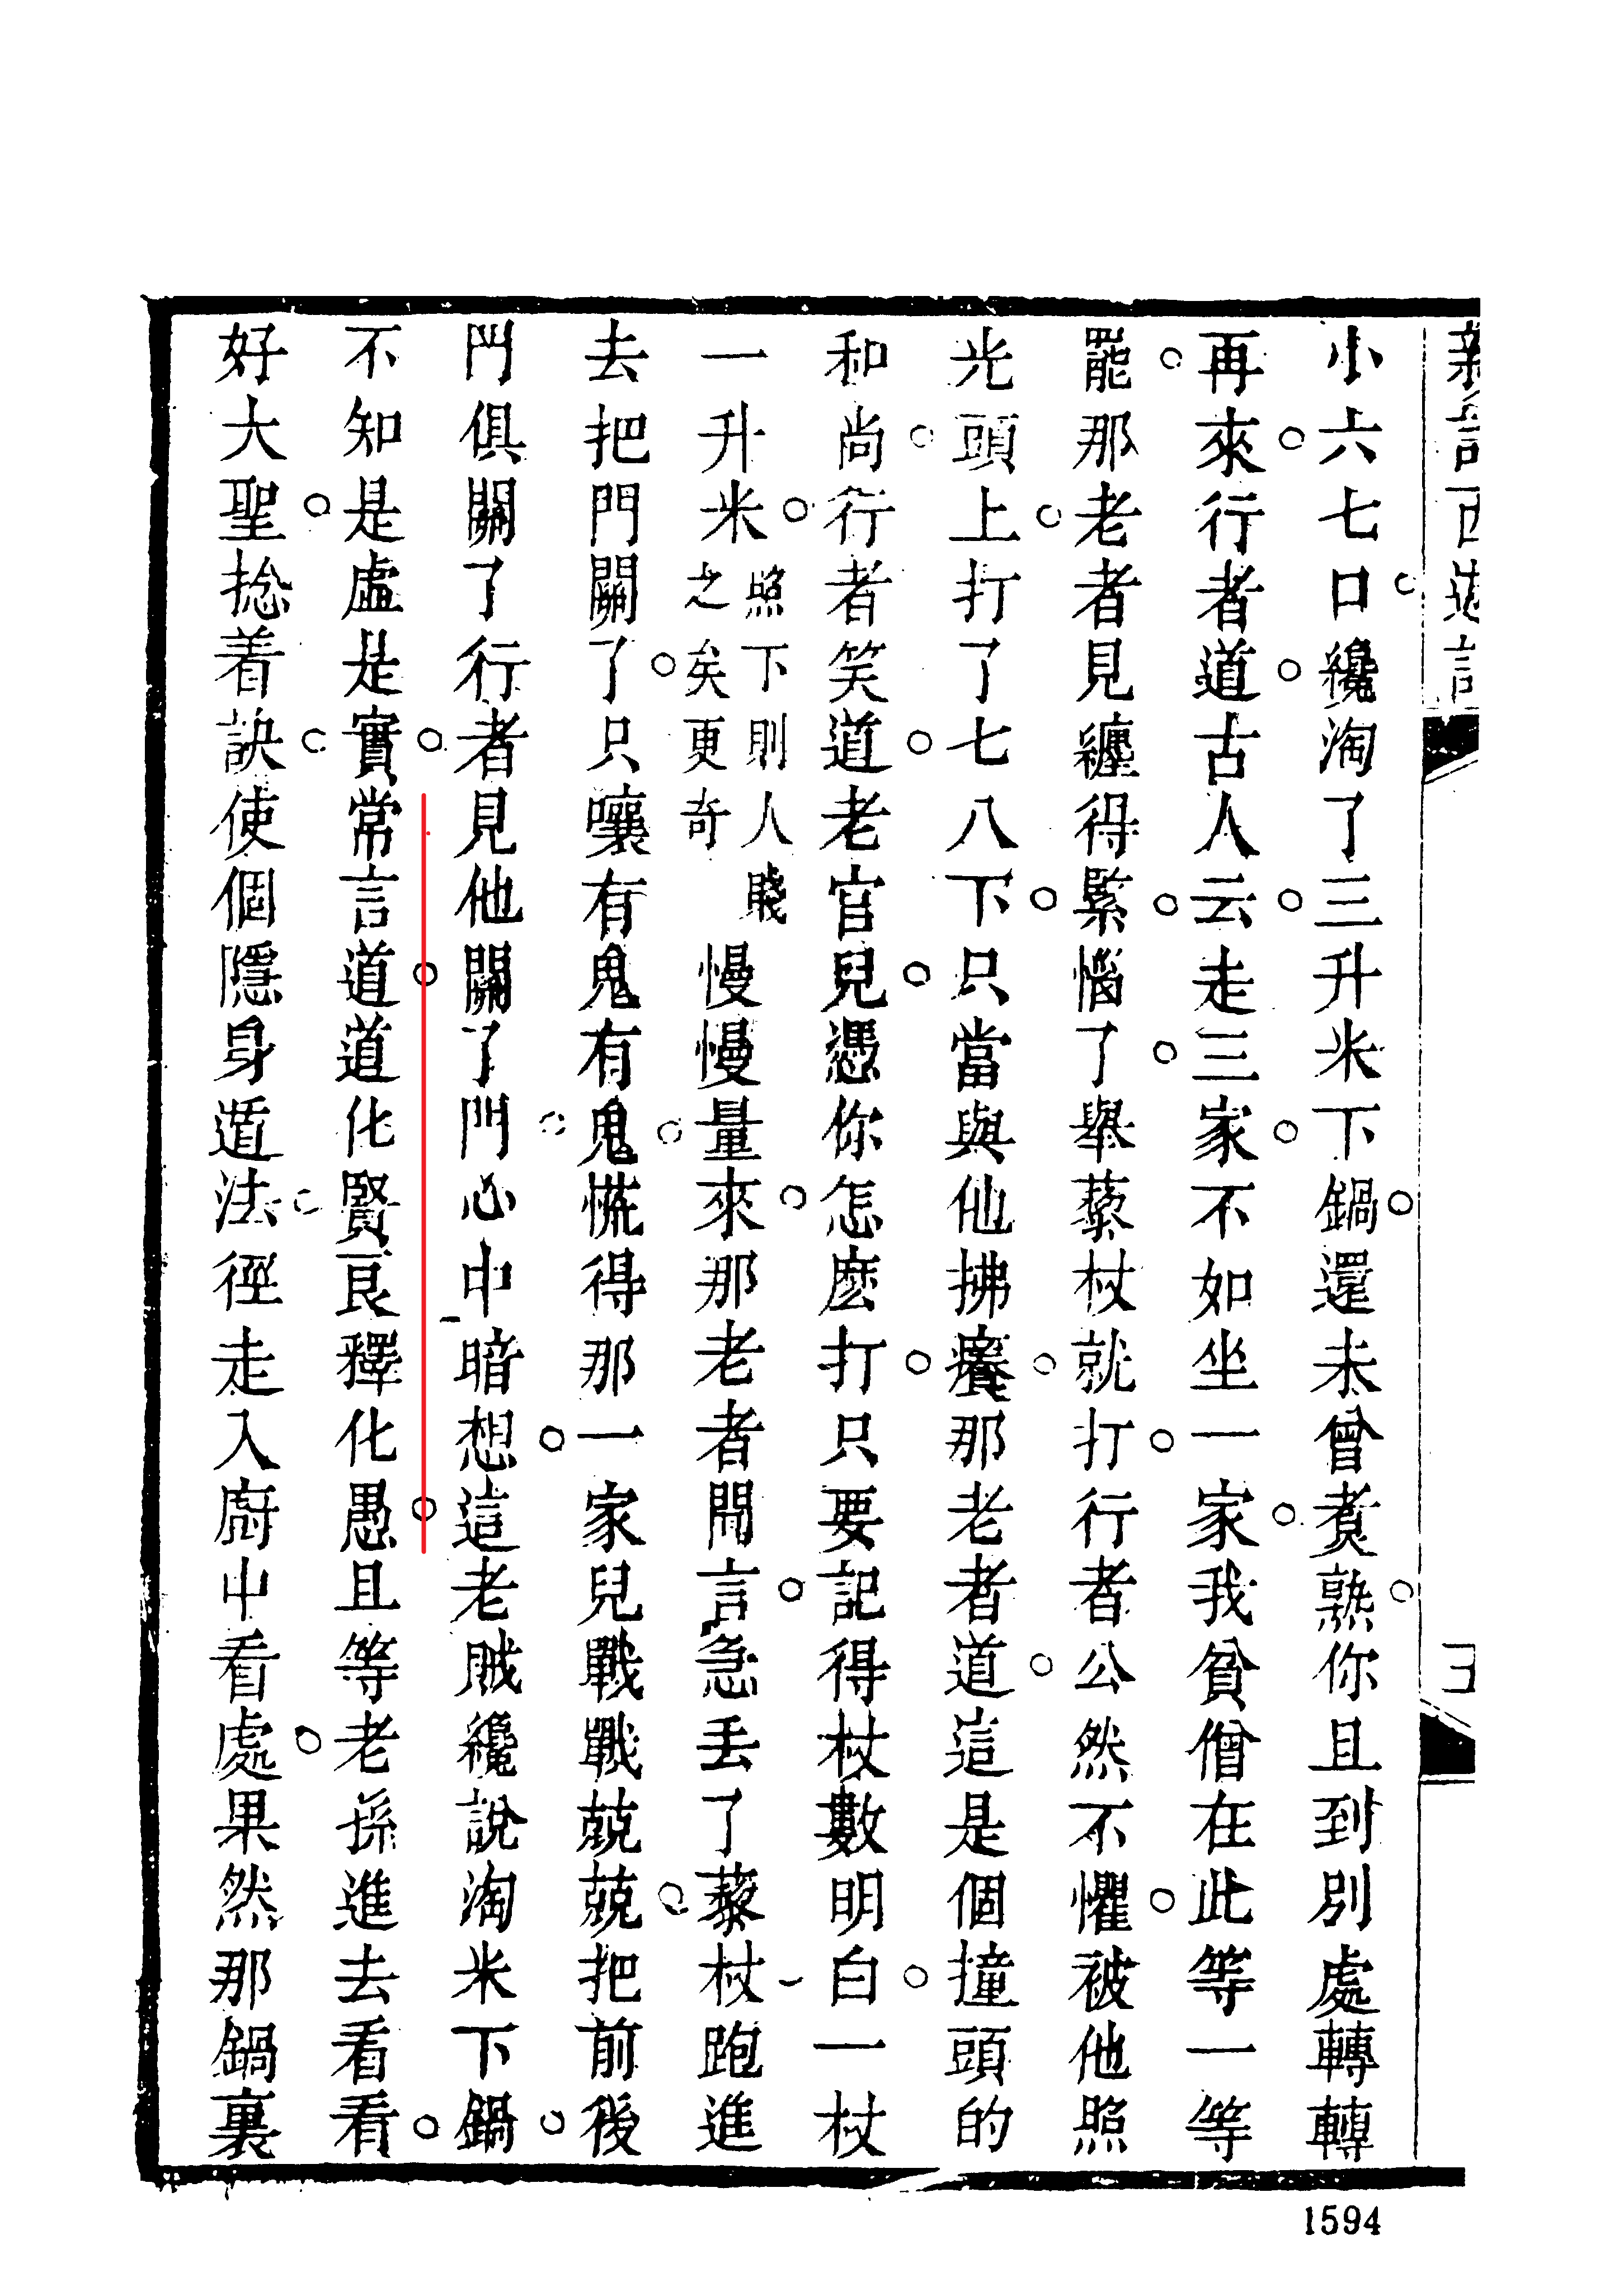 新說西遊記
小六七口纔淘了三升米下鍋還未曾煮熟你且到別處轉轉
再來行者道古人云走三家不如坐一家我貧僧在此等一等
罷那老者見纏得緊惱了舉藜杖就打行者公然不懼被他照
光頭上打了七八下只當與他拂癢那老者道這是個撞頭的
和尚行者笑道老官兒憑你怎麽打只要記得杖數明白一杖
一升米照下則人賤之矣更奇慢慢量來那老者聞言急丟了藜杖跑進
去把門關了只嚷有鬼有鬼慌得那一家兒戰戰兢兢把前後
門俱關了行者見他關了門心中暗想這老賊纔說淘米下鍋
不知是虛是實常言道道化賢良釋化愚且等老孫進去看看
好大聖捻着訣使個隱身遁法徑走入廚中看處果然那鍋裏
1594